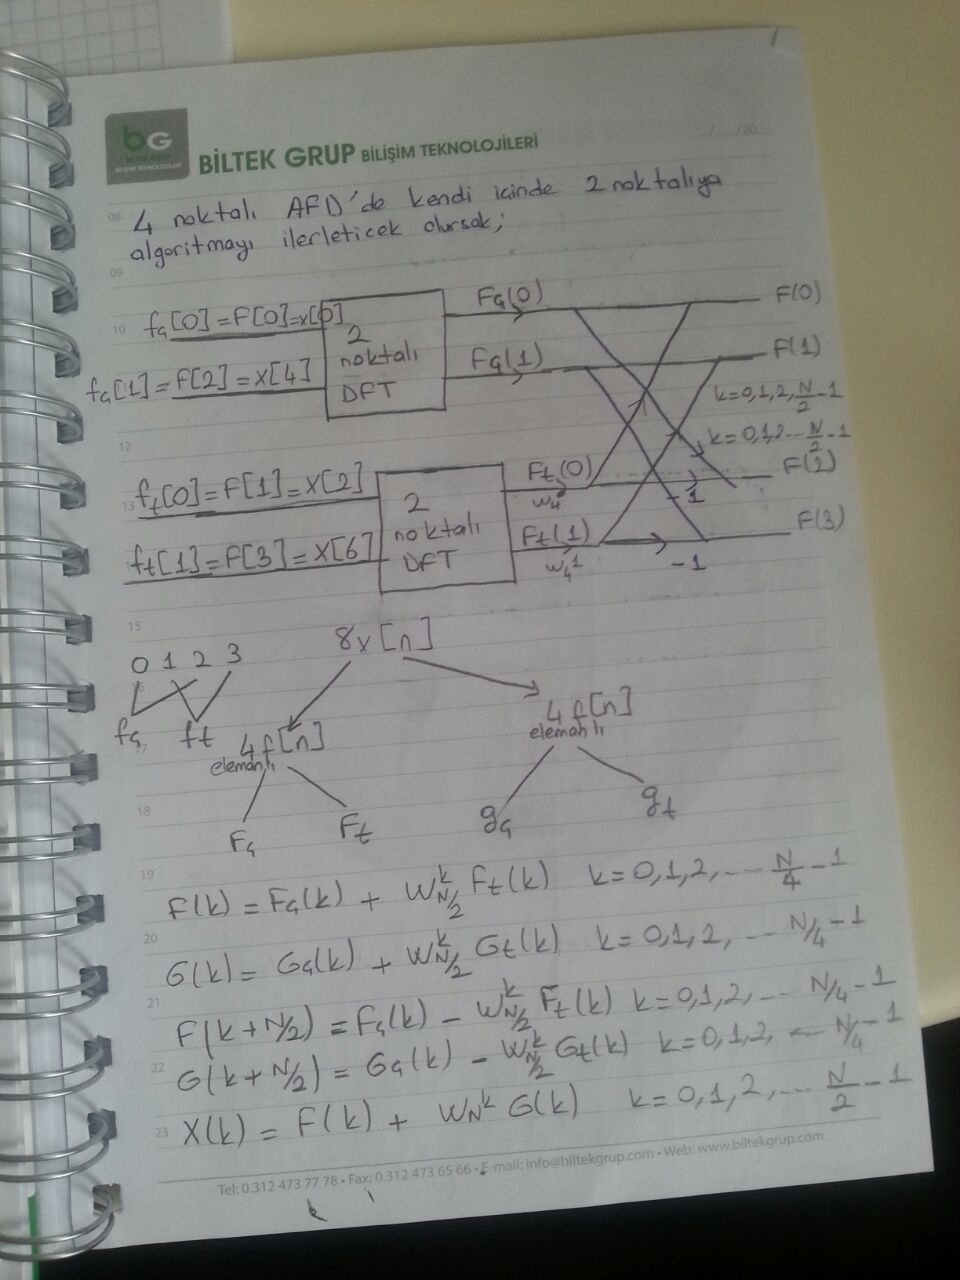 bG
BİLTEK GRUP
BİLİŞİM TEKNOLOJİLERİ
BİLTEK GRUP BİLİŞİM TEKNOLOJİLERİ
/ /20
08
4 noktalı AFD'de kendi içinde 2 noktalıya
algoritmayı ilerleticek olursak;
09
10
fç[0]=F[0]=x[0]
2
noktalı
DFT
Fç(0)
F(0)
fç[1]=F[2]=X[4]
Fç(1)
F(1)
k=0,1,2,N/2-1
k=0,1,2...N/2-1
12
13
ft[0]=F[1]=X[2]
2
noktalı
DFT
Ft(0)
w4⁰
-1
F(2)
ft[1]=F[3]=X[6]
Ft(1)
w4¹
-1
F(3)
15
8x[n]
0 1 2 3
fç ft
17
4f[n]
elemanlı
4f[n]
elemanlı
18
Fç Ft
gç gt
19
F(k) = Fç(k) + W_{N/2}^k Ft(k) k=0,1,2,... N/4-1
20
G(k) = Gç(k) + W_{N/2}^k Gt(k) k=0,1,2,... N/4-1
21
F(k+N/2) = Fç(k) - W_{N/2}^k Ft(k) k=0,1,2,... N/4-1
22
G(k+N/2) = Gç(k) - W_{N/2}^k Gt(k) k=0,1,2, ... N/4-1
23
X(k) = F(k) + W_N^k G(k) k=0,1,2,... N/2-1
Tel: 0.312 473 77 78 • Fax: 0.312 473 65 66 • E-mail: info@biltekgrup.com • Web: www.biltekgrup.com